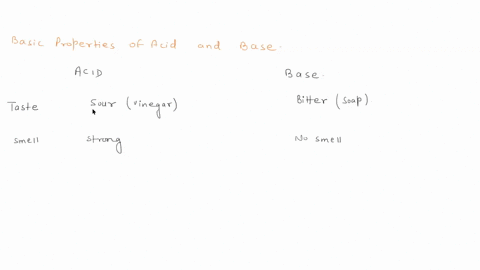 Basic Properties of Acid and Base.
ACID Base.
Taste Sour (vinegar) Bitter (soap)
smell strong No smell